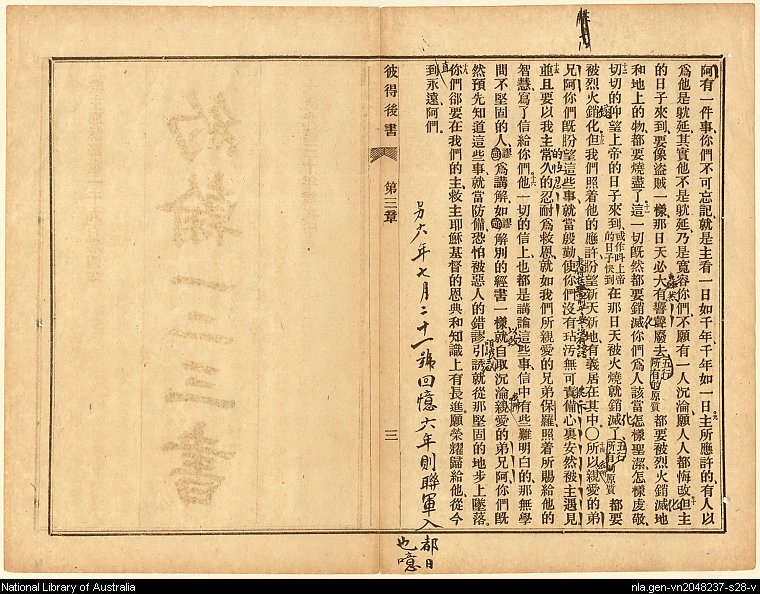 阿有一件事、你們不可忘記就是主看一日如千年、千年如一日主所應許的有人以
爲他是躭延、其實他不是躭延乃是寬容你們、不願有一人沉淪願人人都悔改但主
的日子來到、要像盜賊一樣、那日天必大有響聲廢去所有的原質都要被烈火銷滅、地
和地上的物都要燒盡了這一切旣然都要銷滅、你們爲人該當怎樣聖潔怎樣虔敬、
切切的仰望上帝的日子來到、或作叫上帝的日子快到在那日天被火燒就銷滅了所有的原質都要
被烈火銷化但我們照着他的應許盼望新天新地有義居在其中〇所以親愛的弟
兄阿、你們旣盼望這些事、就當殷勤使你們沒有玷汚無可責備心裏安然被主遇見
並且要以我主常久的忍耐爲救恩就如我們所親愛的兄弟保羅、照着所賜給他的
智慧寫了信給你們他一切的信上也都是講論這些事信中有些難明白的那無學
問不堅固的人謬爲講解如謬解別的經書一樣就自取沉淪親愛的弟兄阿你們旣
然預先知道這些事就當防備恐怕被惡人的錯謬引誘就從那堅固的地步上墜落
你們卻要在我們的主救主耶穌基督的恩典和知識上有長進願榮耀歸給他從今
直到永遠阿們。
五行
化
五行
化
化
的忍耐
以致
六年七月二十一號回憶六年則聯軍入都日也噫
彼得後書 第三章 三
約翰一二三書
National Library of Australia
nla.gen-vn2048237-s28-v